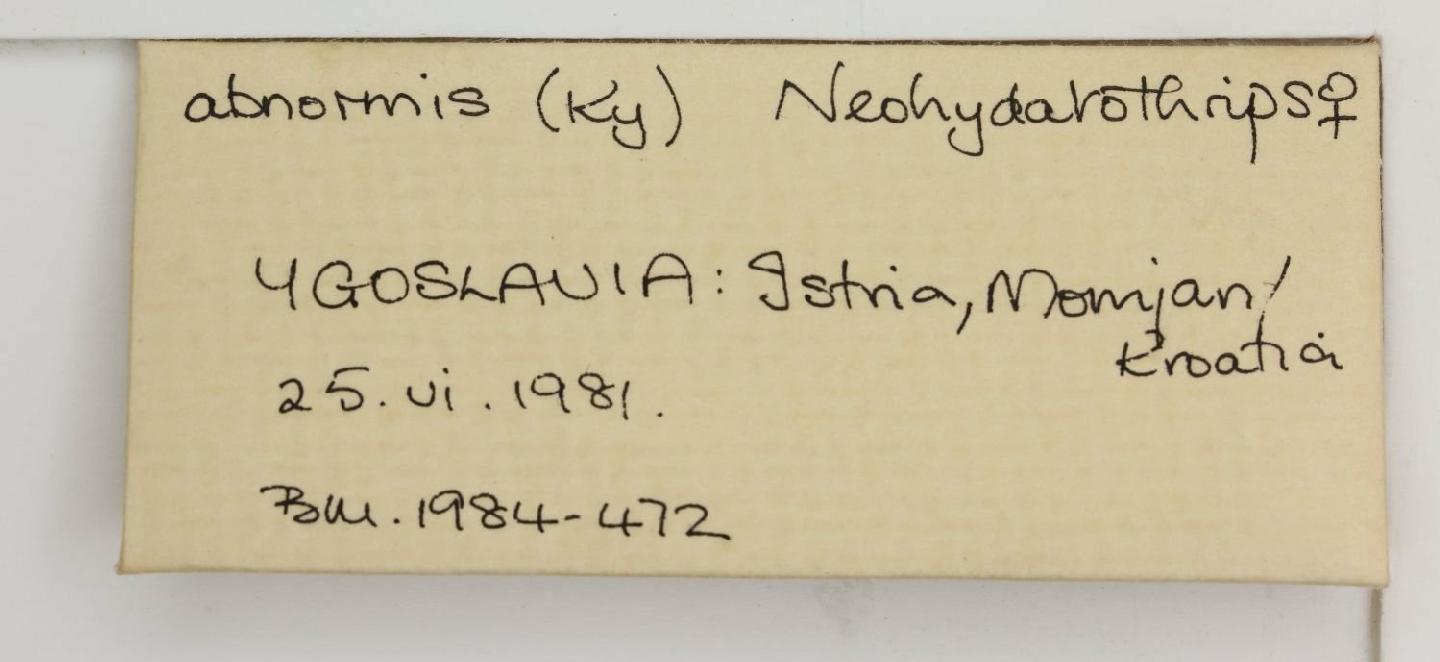 abnormis (Ky) Neohydatothrips♀
YGOSLAVIA: Istria, Momjan/
Kroatia
25.vi.1981.
BM.1984-472